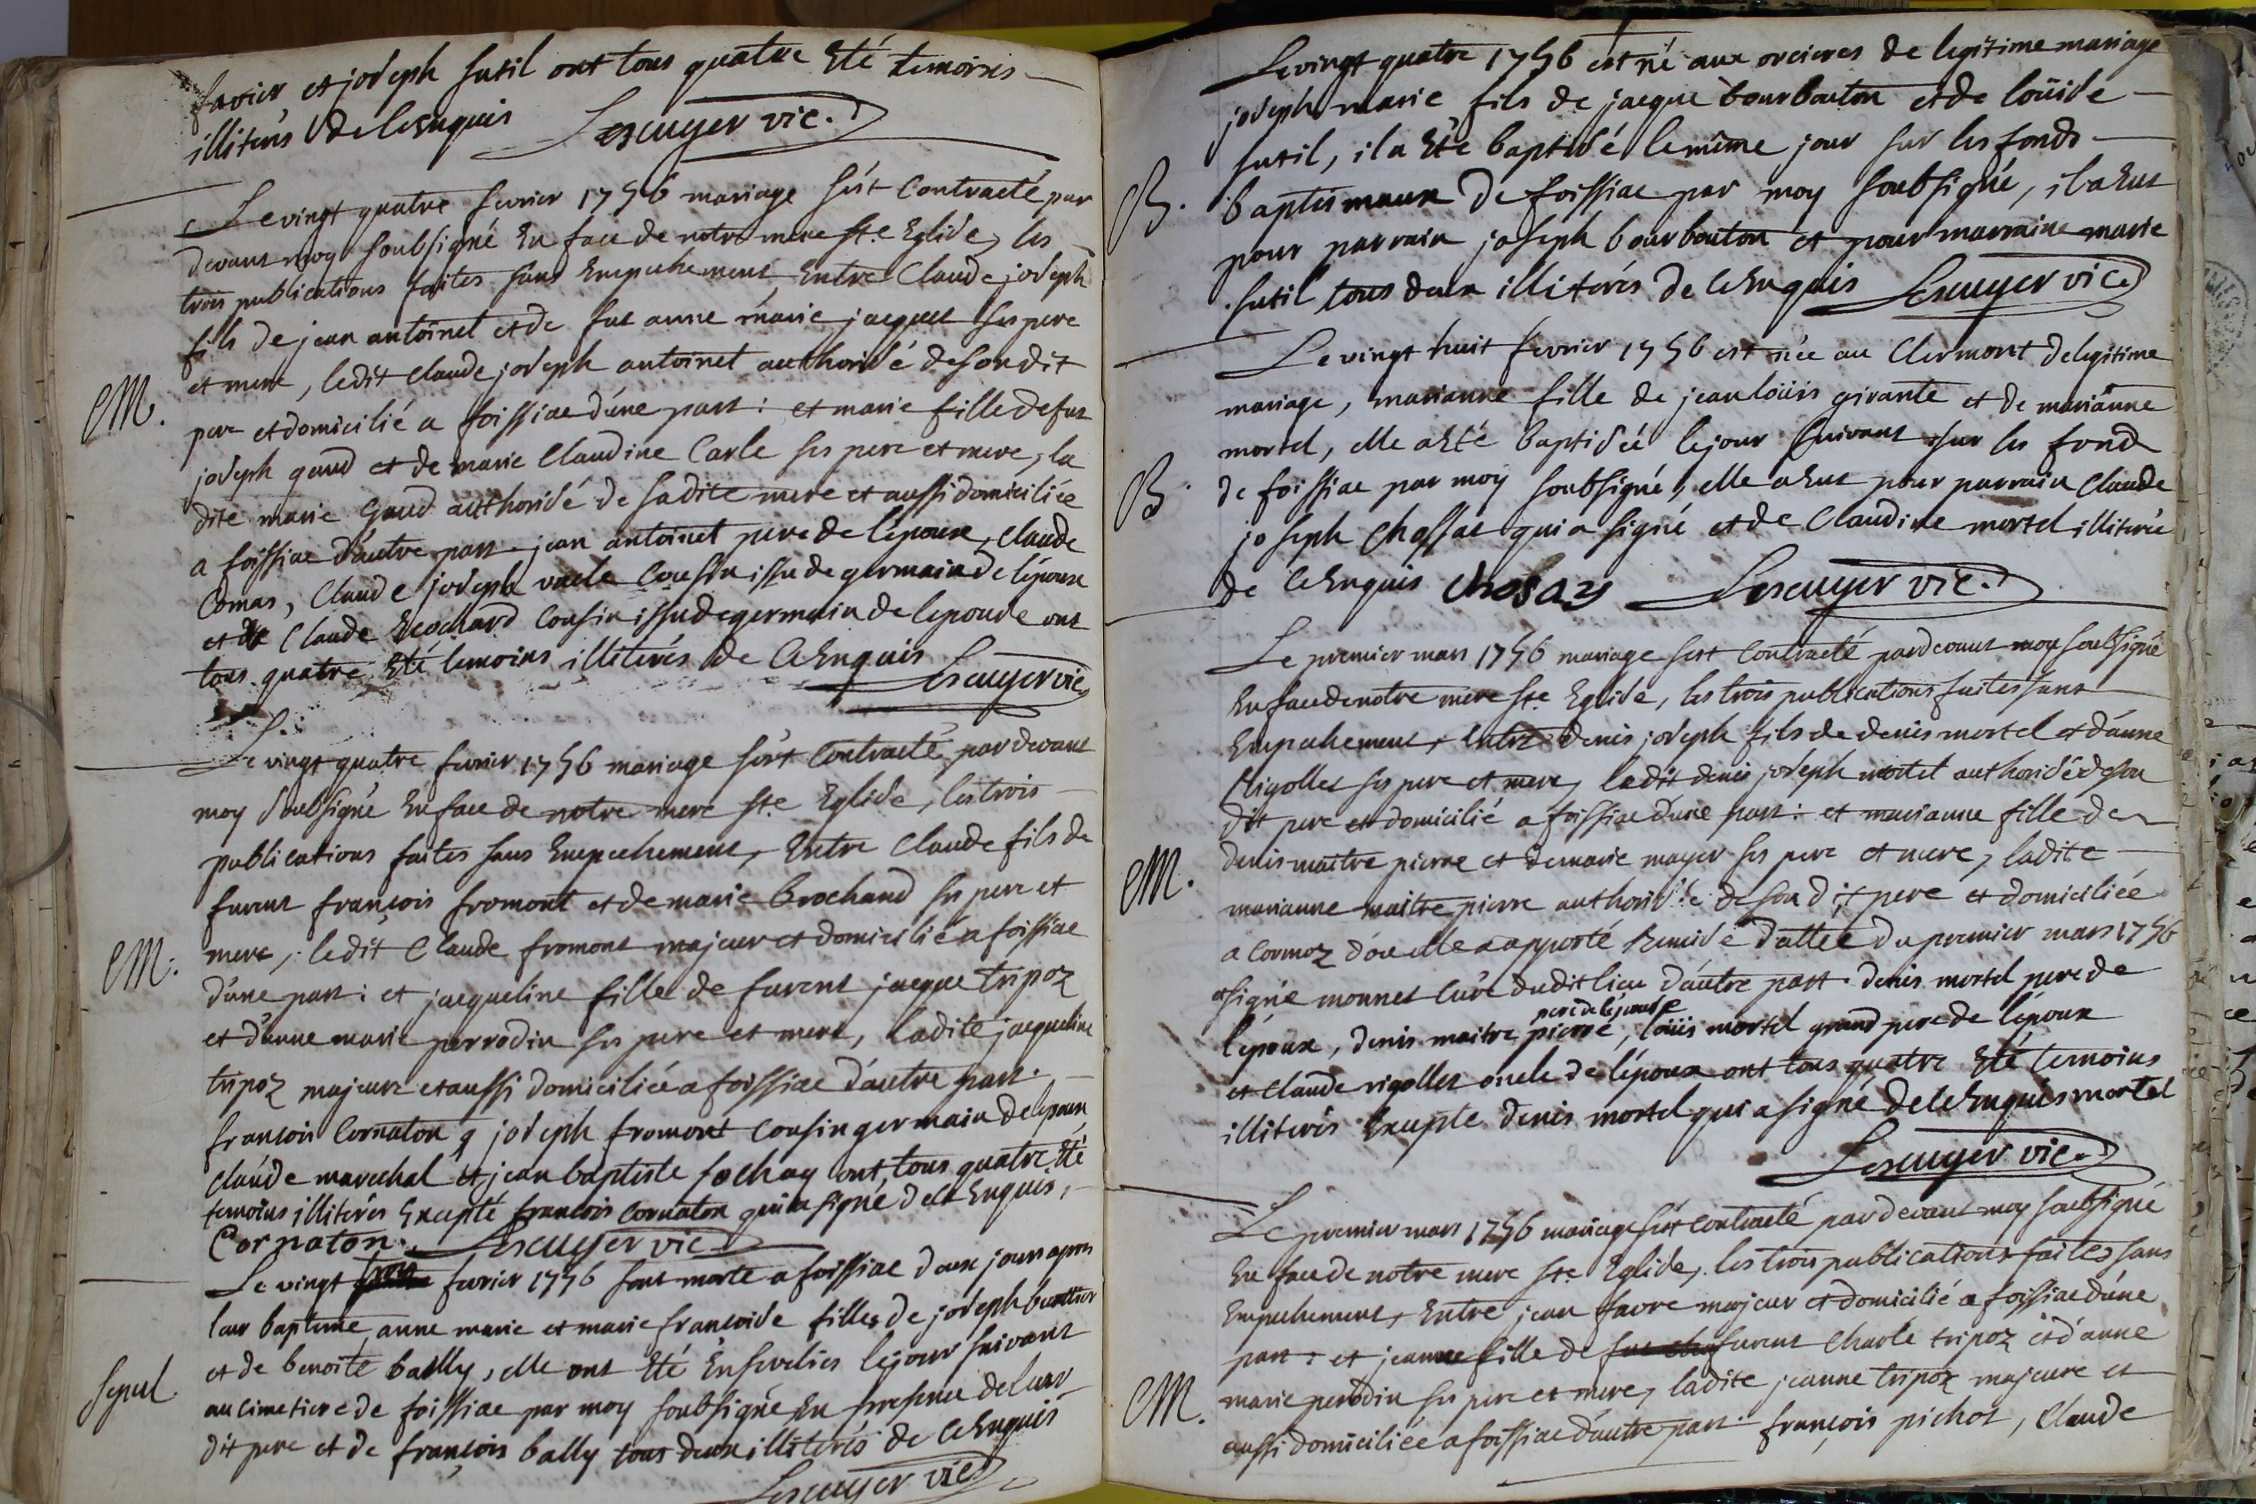 favier, et joseph sutil ont tous quatre Eté temoins
illiterés de ce Enquis Lescuyer vic.
Le vingt quatre fevrier 1756 mariage füt Contracté par
devant moy soubsigné En face de notre mere ste Eglise, les
trois publications faites sans Empechement, Entre Claude joseph
fils de jean antoinet et de fut anne marie jacquet ses pere
et mere, ledit claude joseph antoinet authorisé de son dit
M.
pere et domicilié a foissiac d'une part : et marie fille de fut
joseph gaud et de marie Claudine Carle ses pere et mere, la
dite marie Gaud authorisé de sadite mere et aussi domiciliée
a foissiac d'autre part. jean antoinet pere de l'epoux, claude
Comas, Claude joseph Cousin issu de germain de l'époux
et Claude Brochard Cousin issu de germain de l'epouse ont
tous quatre Eté temoins illiterés de Ce Enquis
Lescuyer vic
Le vingt quatre fevrier 1756 mariage füt Contracté par devant
moy soubsigné En face de notre mere ste Eglise, les trois
publications faites sans Empechement, Entre Claude fils de
furent françois fromont et de marie brochand ses pere et
mere, ledit Claude fromont majeur et domicilié a foissiac
M.
d'une part : et jacqueline fille de furent jacque tripoz
et d'anne marie perrodin ses pere et mere, ladite jacqueline
tripoz majeure et aussi domiciliée a foissiac d'autre part.
françois Cornaton joseph fromont Cousin germain de l'epoux,
claude marechal et jean baptiste fochay ont tous quatre Eté
temoins illiterés Excepté françois Cornaton qui a signé de ce Enquis,
Cornaton. Lescuyer vic
Le vingt trois fevrier 1756 sont morte a foissiac deux jours apres
leur bapteme, anne marie et marie françoise filles de joseph
et de benoite bally, elle ont Eté Ensevelies le jour suivant
Sepul.
au cimetiere de foissiac par moy soubsigné En presence de leur
dit pere et de françois bally tous deux illiterés de Ce Enquis
Lescuyer vic
Le vingt quatre 1756 est né aux orcieres de legitime mariage
joseph marie fils de jacque bourbouton et de loüise
sutil, il a Eté baptisé le même jour sur les fonds
B.
baptismaux de foissiac par moy soubsigné, il a Eut
pour parrain joseph bourbouton et pour marraine marie
sutil tous deux illiterés de ce Enquis Lescuyer vic
Le vingt huit fevrier 1756 est née au Clermont de legitime
mariage, marianne fille de jean loüis girante et de marianne
mortel, elle a Eté baptisée le jour suivant sur les fond
B.
de foissiac par moy soubsigné, elle a Eut pour parrain Claude
joseph Chassac qui a signé et de Claudine mortel illiterée
de Ce Enquis Lescuyer vic.
Le premier mars 1756 mariage fut Contracté par devant moy soubsigné
En face de notre mere ste Eglise, les trois publications faites sans
Empechement, Entre denis joseph fils de denis mortel et d'anne
Rigollet ses pere et mere, ledit denis joseph mortel authorisé de son
dit pere et domicilié a foissiac d'une part : et marianne fille de
denis maitre pierre et de marie mayer ses pere et mere, ladite
M.
marianne maitre pierre authorisée de son dit pere et domiciliée
a Cormoz d'où elle a apporté Remise dattee du premier mars 1756
signé monnet Curé dudit lieu d'autre part. denis mortel pere de
pere de l'epouse
l'époux, denis maitre pierre, loüis mortel grand pere de l'époux
et Claude rigollet oncle de l'époux ont tous quatre Eté temoins
illiterés Excepte denis mortel qui a signé de ce Enquis mortel
Lescuyer vic.
Le premier mars 1756 mariage füt Contracté par devant moy soubsigné
En face de notre mere ste Eglise, les trois publications faites sans
Empechement, Entre jean favre majeur et domicilié a foissiac d'une
part : et jeanne fille de furent Charle tripoz et d'anne
marie perrodin ses pere et mere, ladite jeanne tripoz majeure et
M.
aussi domiciliée a foissiac d'autre part. françois pichot, Claude